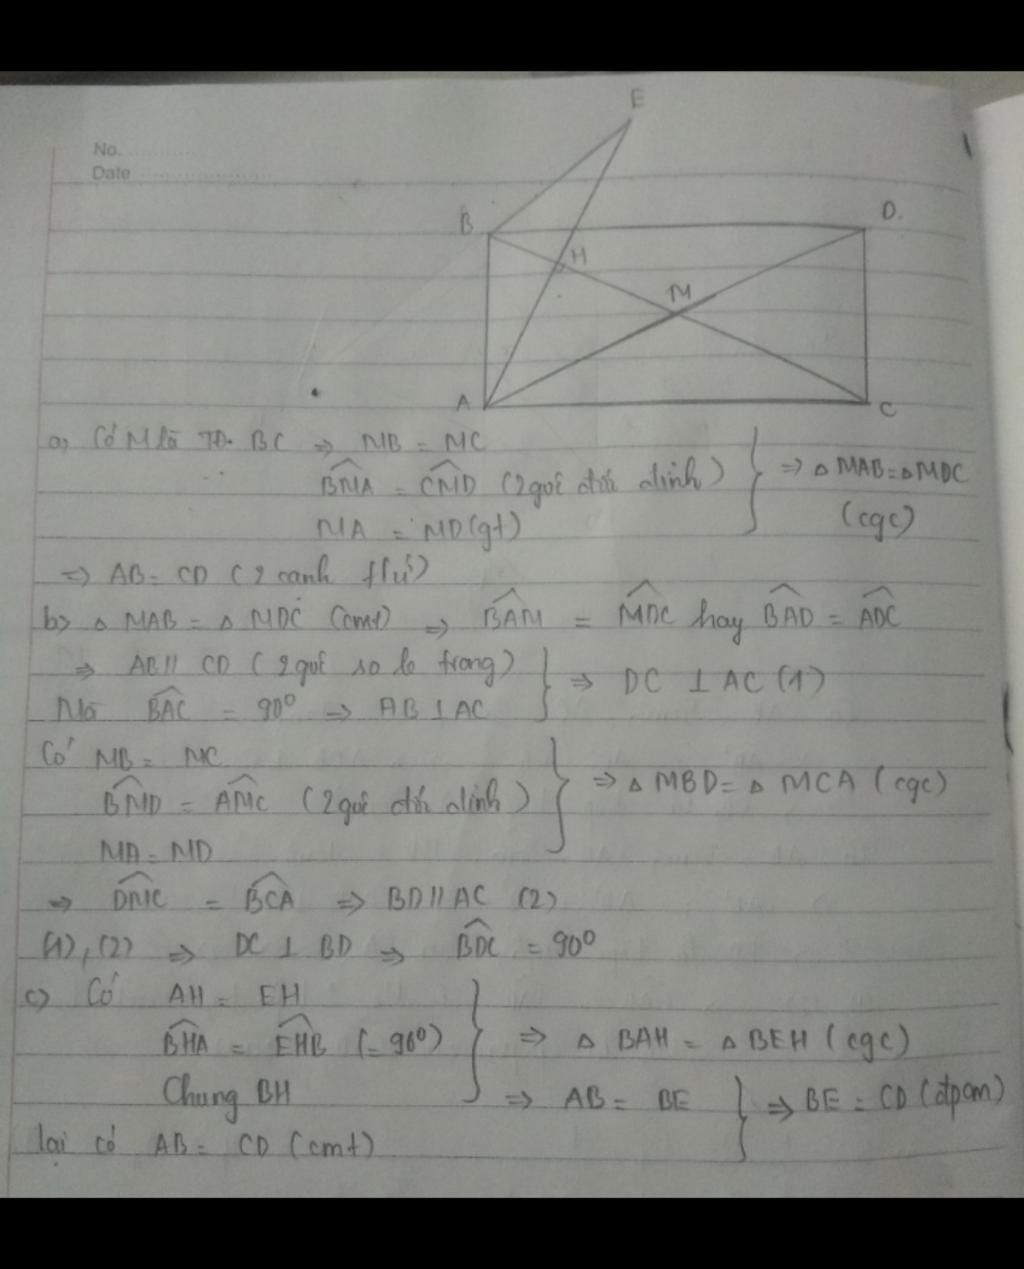 No.
Date
E
B
D.
H
M
A
C
a) Có M là TĐ. BC => MB = MC
BMA = CMD (2 góc đối đỉnh)
MA = MD (gt)
=> △ MAB = △ MDC
(cgc)
=> AB = CD (2 cạnh t/ứ)
b) △ MAB = △ MDC (cmt) => BAM = MDC hay BAD = ADC
=> AB // CD (2 góc so le trong)
Mà BAC = 90° => AB ⊥ AC
=> DC ⊥ AC (1)
Có MB = MC
BMD = AMC (2 góc đối đỉnh)
MA = MD
=> △ MBD = △ MCA (cgc)
=> = BCA => BD // AC (2)
(1), (2) => DC ⊥ BD => BDC = 90°
c) Có AH = EH
BHA = EHB (= 90°)
Chung BH
=> △ BAH = △ BEH (cgc)
=> AB = BE
lại có AB = CD (cmt)
=> BE = CD (đpcm)